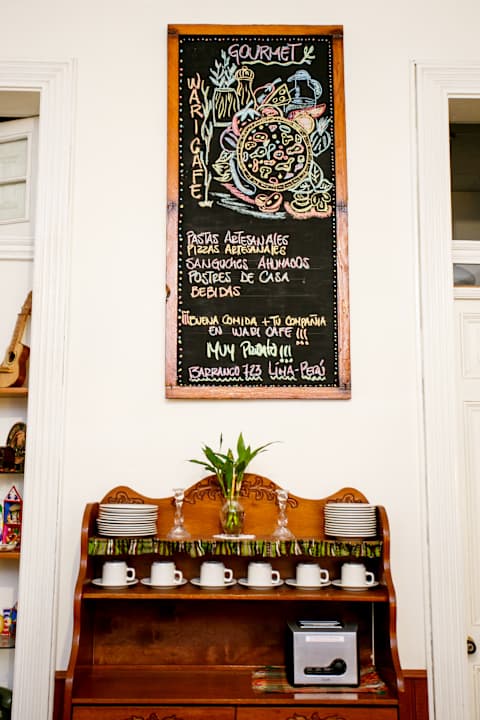 GOURMET
WARI CAFE
PASTAS ARTESANALES
PIZZAS ARTESANALES
SANGUCHES AHUMADOS
POSTRES DE CASA
BEBIDAS
¡¡¡BUENA COMIDA + TU COMPAÑIA
EN WARI CAFE !!!
MUY PRONTO !!!
BARRANCO 723 LIMA-PERÚ